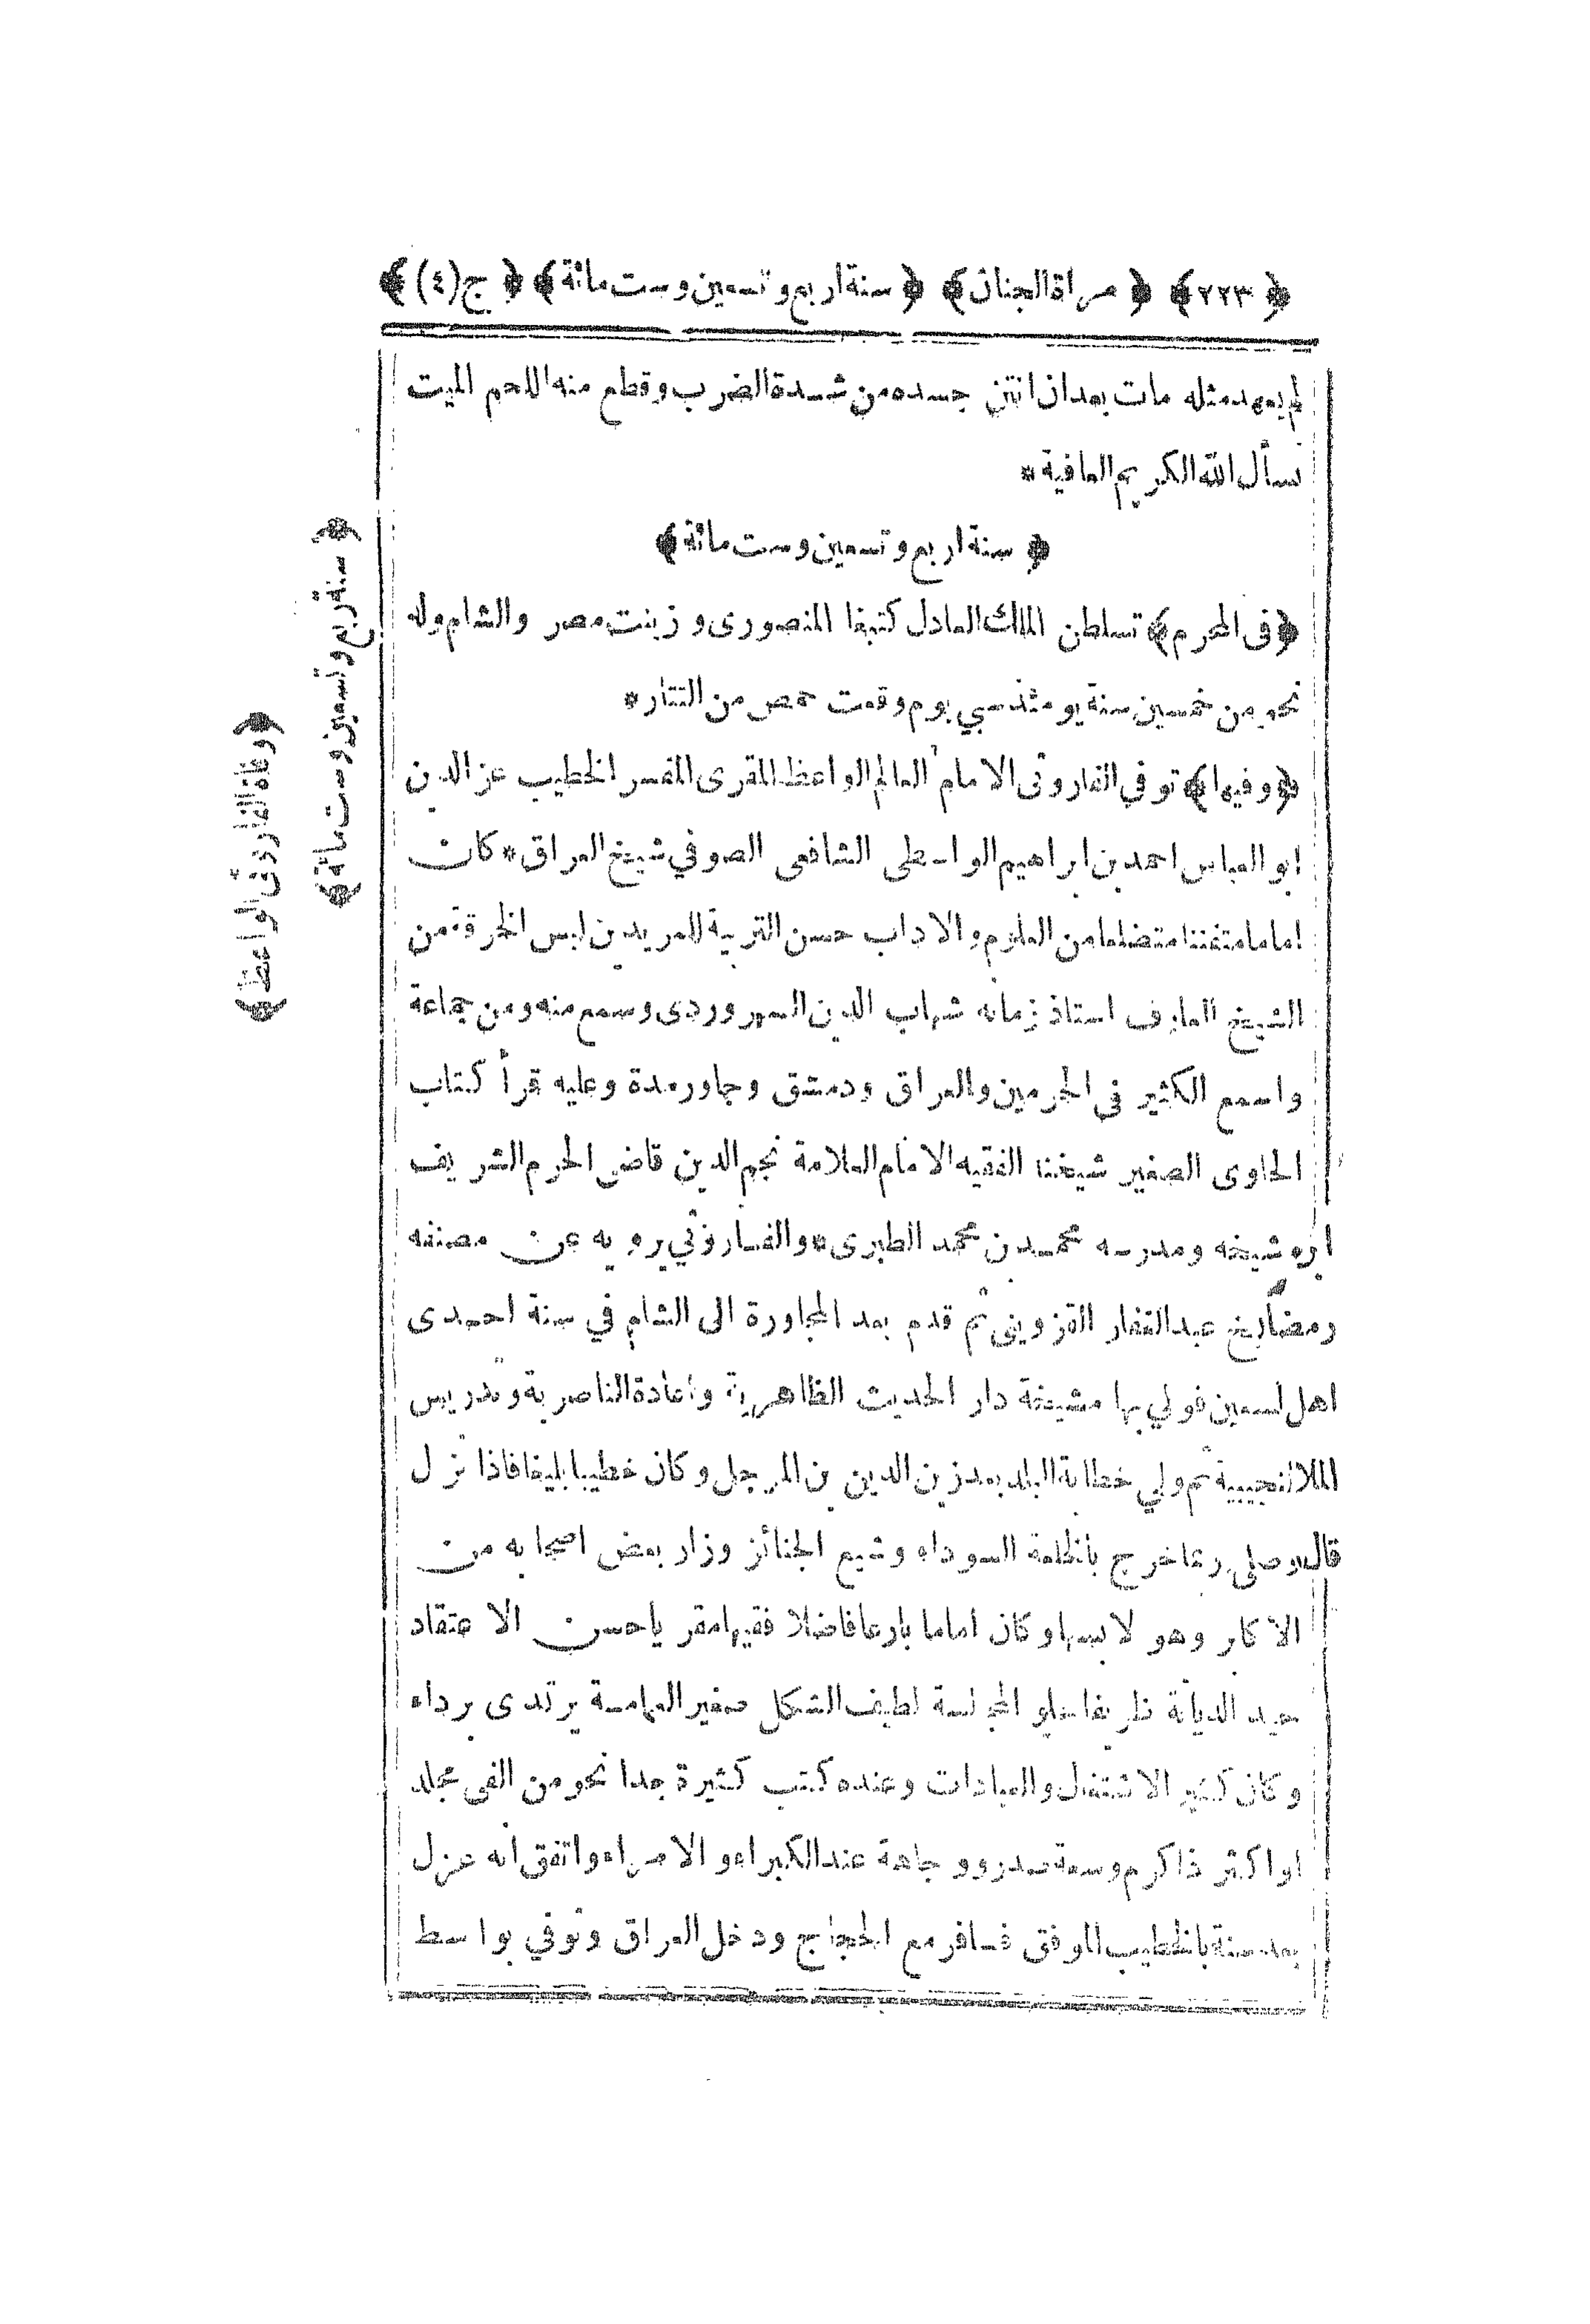 ﴿٢٢٣﴾ ﴿مراة الجنان﴾ ﴿سنة اربع وتسعين وست مائة﴾ ﴿ج(٤)﴾
لم يعهد مثله مات بعد ان انتن جسده من شدة الضرب وقطع منه اللحم الميت
نسأل الله الكريم العافية *
﴿سنة اربع وتسعين وست مائة﴾
﴿فى المحرم﴾ تسلطن الملك العادل كتبغا المنصورى وزينت مصر والشام وله
نحو من خمسين سنة يومئذ سبي يوم وقعت حمص من التتار *
﴿وفيها﴾ توفي الفاروثى الامام العالم الواعظ المقرى المفسر الخطيب عز الدين
ابو العباس احمد بن ابراهيم الواسطى الشافعى الصوفي شيخ العراق * كان
اماما متفننا متضلعا من العلوم والاداب حسن التربية للمريدين لبس الخرقة من
الشيخ العارف استاذ زمانه شهاب الدين السهروردى وسمع منه ومن جماعة
واسمع الكثير فى الحرمين والعراق ودمشق وجاور مدة وعليه قرأ كتاب
الحاوى الصغير شيخنا الفقيه الامام العلامة نجم الدين قاضى الحرم الشريف
شيخه ومدرسه محمد بن محمد الطبرى * والفاروثي يرويه عن مصنفه
عبد الغفار القزوينى ثم قدم بعد المجاورة الى الشام في سنة احدى
فولي بها مشيخة دار الحديث الظاهرية واعادة الناصرية وتدريس
النجيبية ثم ولي خطابة البلد بعد زين الدين بن المرجل وكان خطيبا بليغا فاذا نزل
وصلى ربما خرج بالخلعة السوداء وشيع الجنائز وزار بعض اصحابه من
الاكابر وهو لابسها وكان اماما بارعا فاضلا فقيها مقريا حسن الاعتقاد
جيد الديانة ظريفا حلو المجالسة لطيف الشكل صغير العمامة يرتدى برداء
وكان كثير الاشتغال والعبادات وعنده كتب كثيرة جدا نحو من الفى مجلد
او اكثر ذا كرم وسعة صدر ووجاهة عند الكبراء والامراء واتفق انه عزل
بعد سنة بالخطيب الموفق فسافر مع الحجاج ودخل العراق وتوفي بواسط
﴿سنة ربع وتسعين وست مائة﴾
﴿وفاة الفاروثى الواعظ﴾